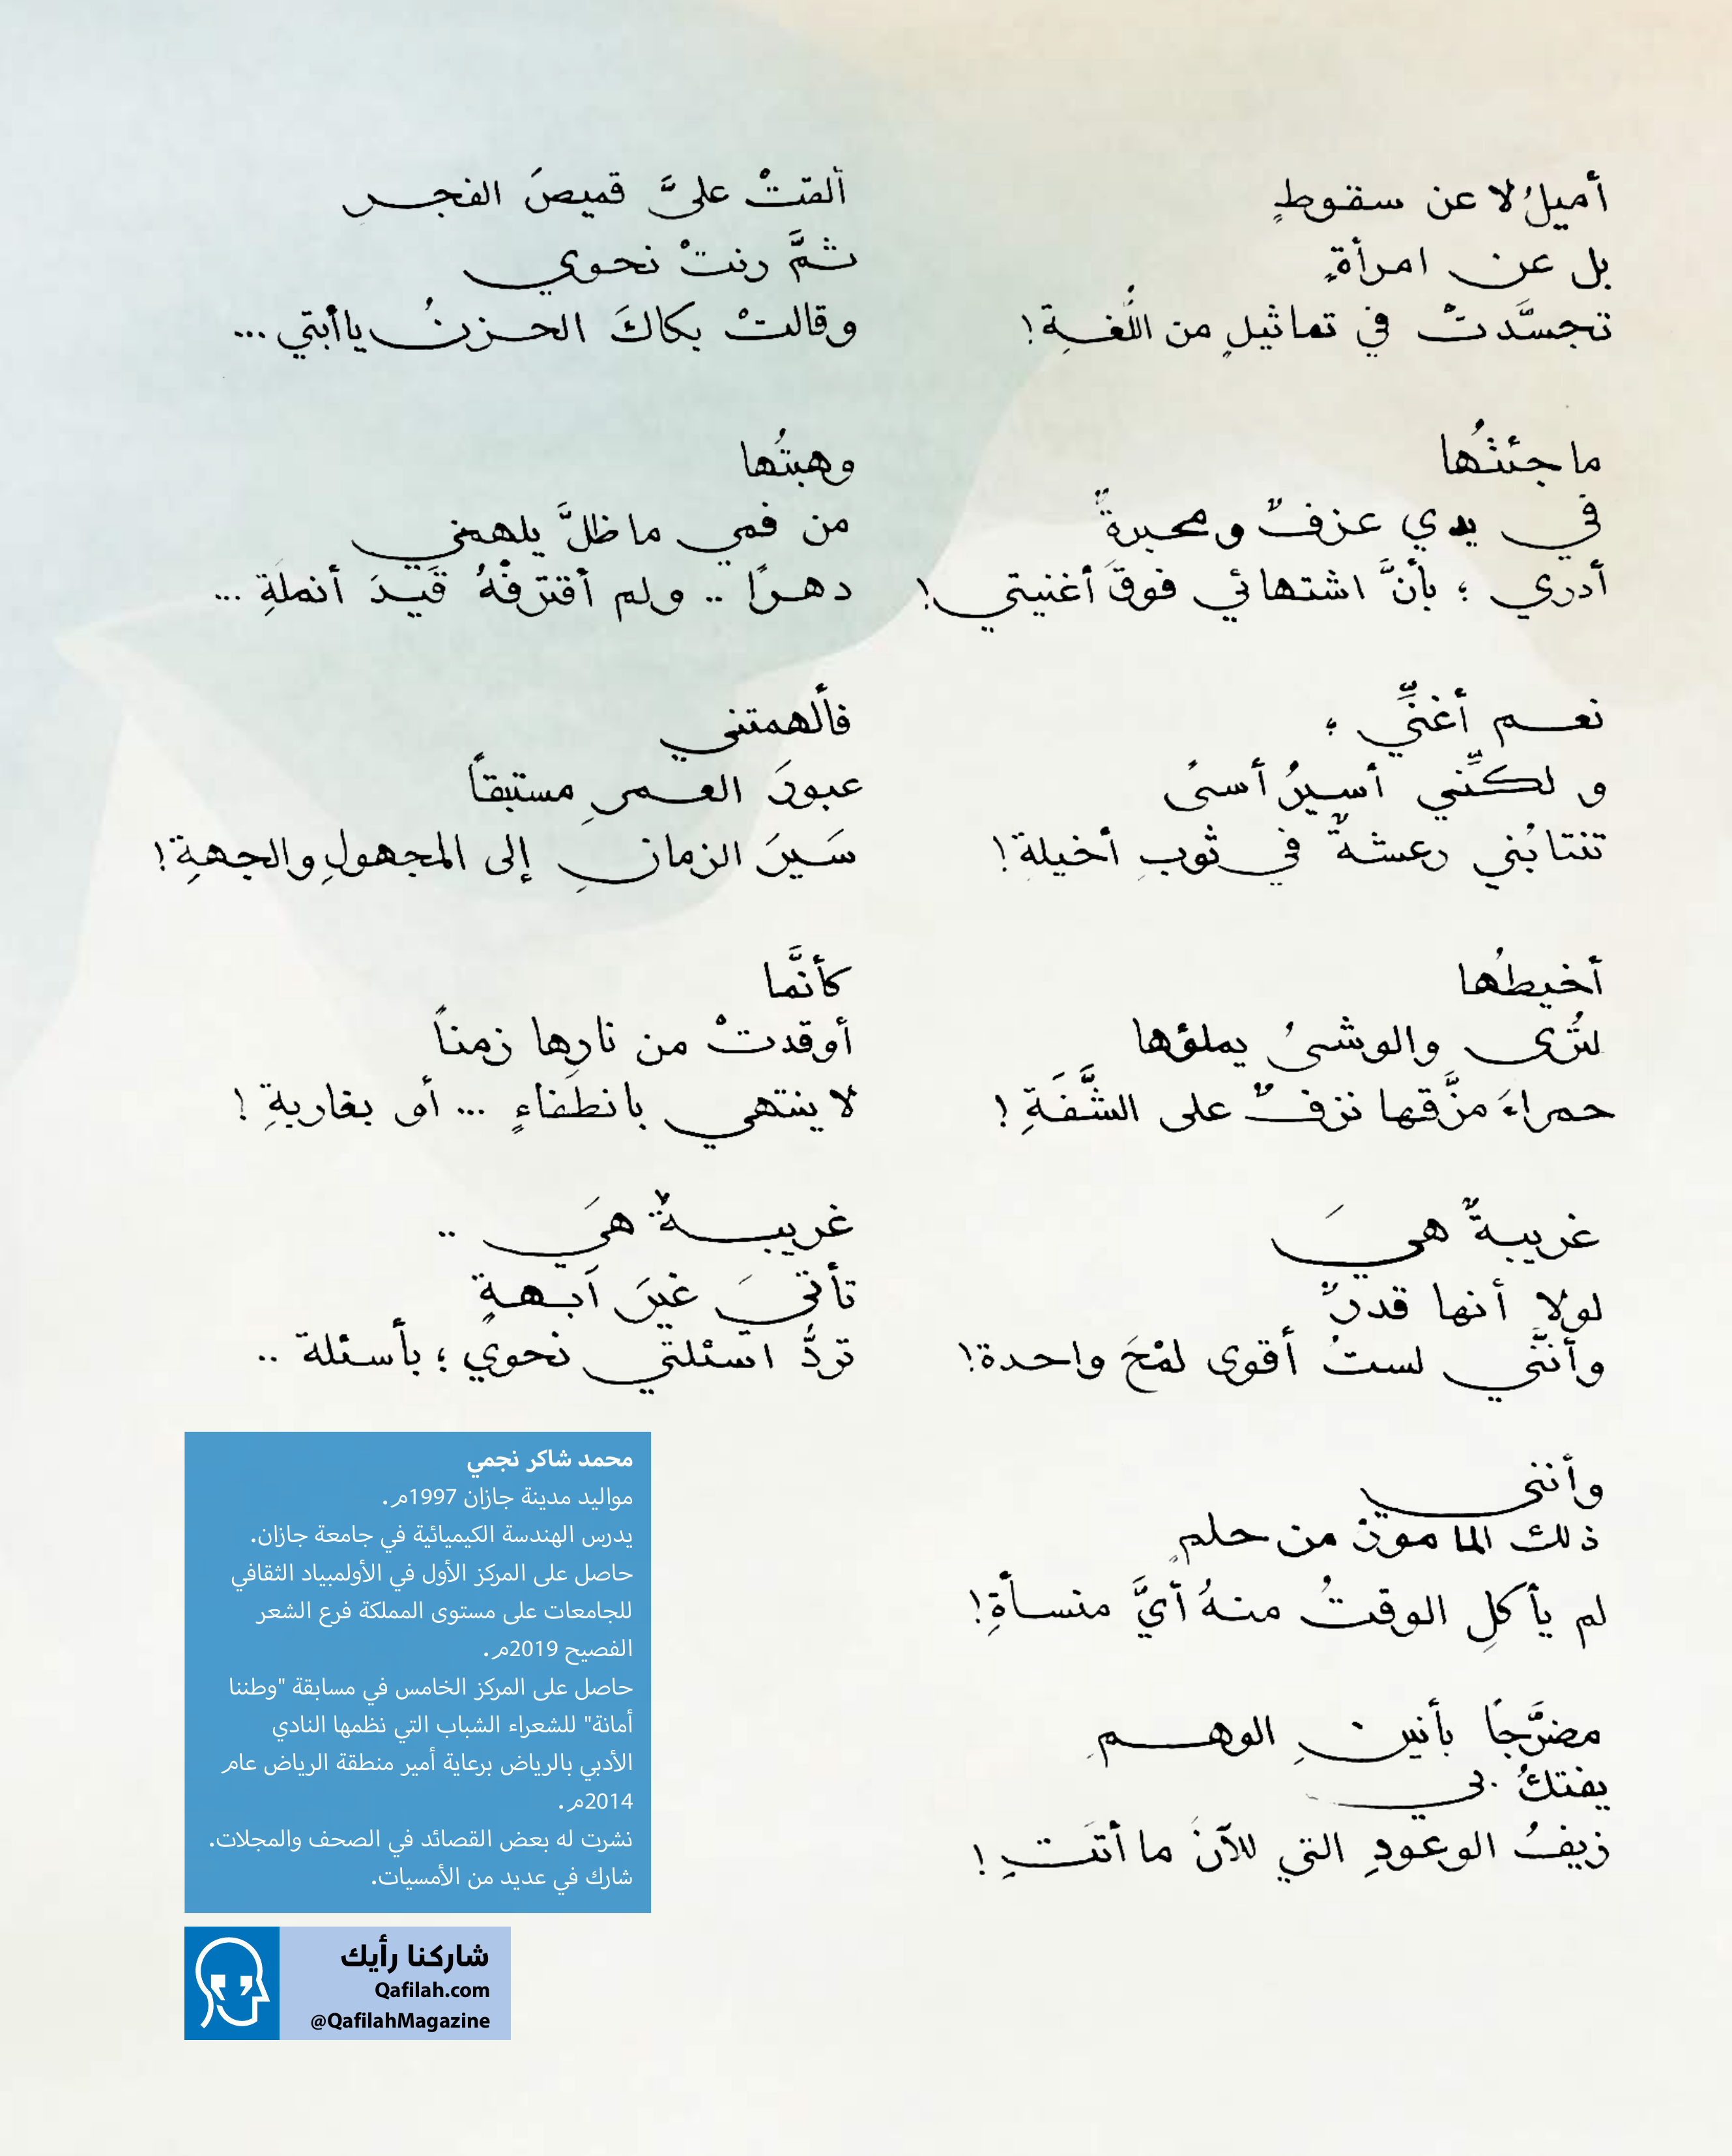 أميلُ لا عن سقوطٍ
بل عن امرأةٍ
تجسَّدتْ في تماثيلٍ من اللُّغةِ!
ما جئتُها
في يدي عزفٌ ومحبرةٌ
أدري ؛ بأنَّ اشتهائي فوقَ أغنيتي!
نعم أغنِّي ؛
و لكنِّني أسيرُ أسىً
تنتابُني رعشةٌ في ثوبِ أخيلة!
أخيطُها
لتُرى والوشيُ يملؤها
حمراءَ مزَّقها نزفٌ على الشَّفَةِ!
غريبةٌ هيَ
لولا أنها قدرٌ
وأنَّني لستُ أقوى لمْحَ واحدة!
وأنني
ذلك المأمونُ من حلمٍ
لم يأكلِ الوقتُ منهُ أيَّ منسأةِ!
مضرَّجًا بأنينِ الوهمِ
يفتكُ بي
زيفُ الوعودِ التي للآنَ ما أتَتِ!
ألقتْ عليَّ قميصَ الفجرِ
ثمَّ رنتْ نحوي
وقالتْ بكاكَ الحزنُ يا أبتي ...
وهبتُها
من فمي ما ظلَّ يلهمني
دهرًا .. ولم أقترفْهُ قَيدَ أنملَةِ ...
فألهمتني
عبورَ العمرِ مستبقاً
سَيرَ الزمانِ إلى المجهولِ والجهةِ!
كأنَّما
أوقدتْ من نارِها زمناً
لا ينتهي بانطفاءٍ ... أو بغاربةِ!
غريبةٌ هيَ ..
تأتيَ غيرَ آبهةٍ
تردُّ أسئلتي نحوي ؛ بأسئلة ..
محمد شاكر نجمي
مواليد مدينة جازان 1997م.
يدرس الهندسة الكيميائية في جامعة جازان.
حاصل على المركز الأول في الأولمبياد الثقافي
للجامعات على مستوى المملكة فرع الشعر
الفصيح 2019م.
حاصل على المركز الخامس في مسابقة "وطننا
أمانة" للشعراء الشباب التي نظمها النادي
الأدبي بالرياض برعاية أمير منطقة الرياض عام
2014م.
نشرت له بعض القصائد في الصحف والمجلات.
شارك في عديد من الأمسيات.
شاركنا رأيك
Qafilah.com
@QafilahMagazine